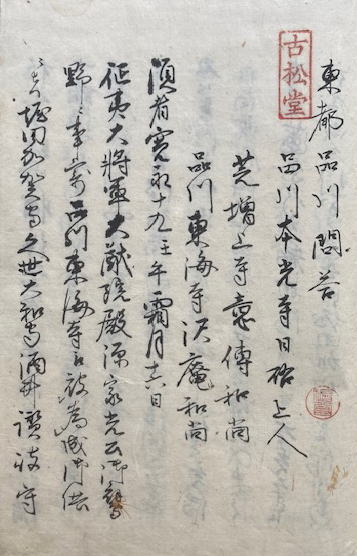 東都品川問答
古松堂
品川本光寺日啓上人
芝増上寺意傳和尚
品川東海寺沢庵和尚
頃者寛永十九壬午霜月十六日
征夷大將軍大猷院殿源家光公御鷹
野之事寄品川東海寺被為成御供
堀田加賀守久世大和守酒井讃岐守